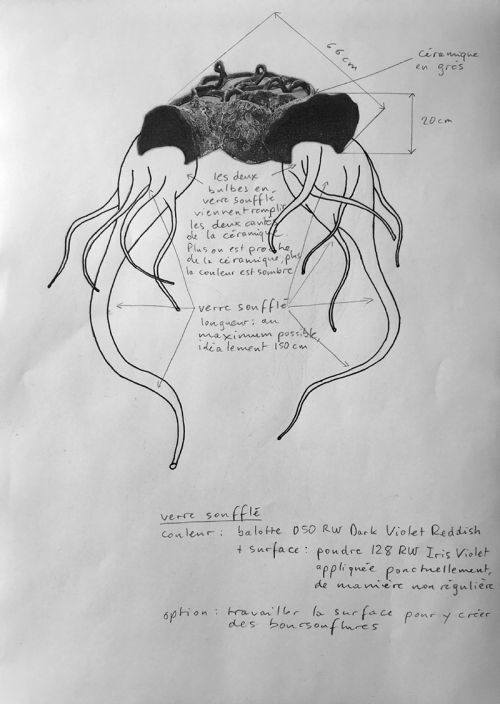 66 cm
céramique
en grès
20 cm
les deux
bulbes en
verre soufflé
viennent remplir
les deux cavités
de la céramique.
Plus on est proche
de la céramique, plus
la couleur est sombre
verre soufflé
longueur : au
maximum possible,
idéalement 150 cm
verre soufflé
couleur : balotte 050 RW Dark Violet Reddish
+ surface : poudre 128 RW Iris Violet
appliquée ponctuellement,
de manière non régulière
option : travailler la surface pour y créer
des boursouflures